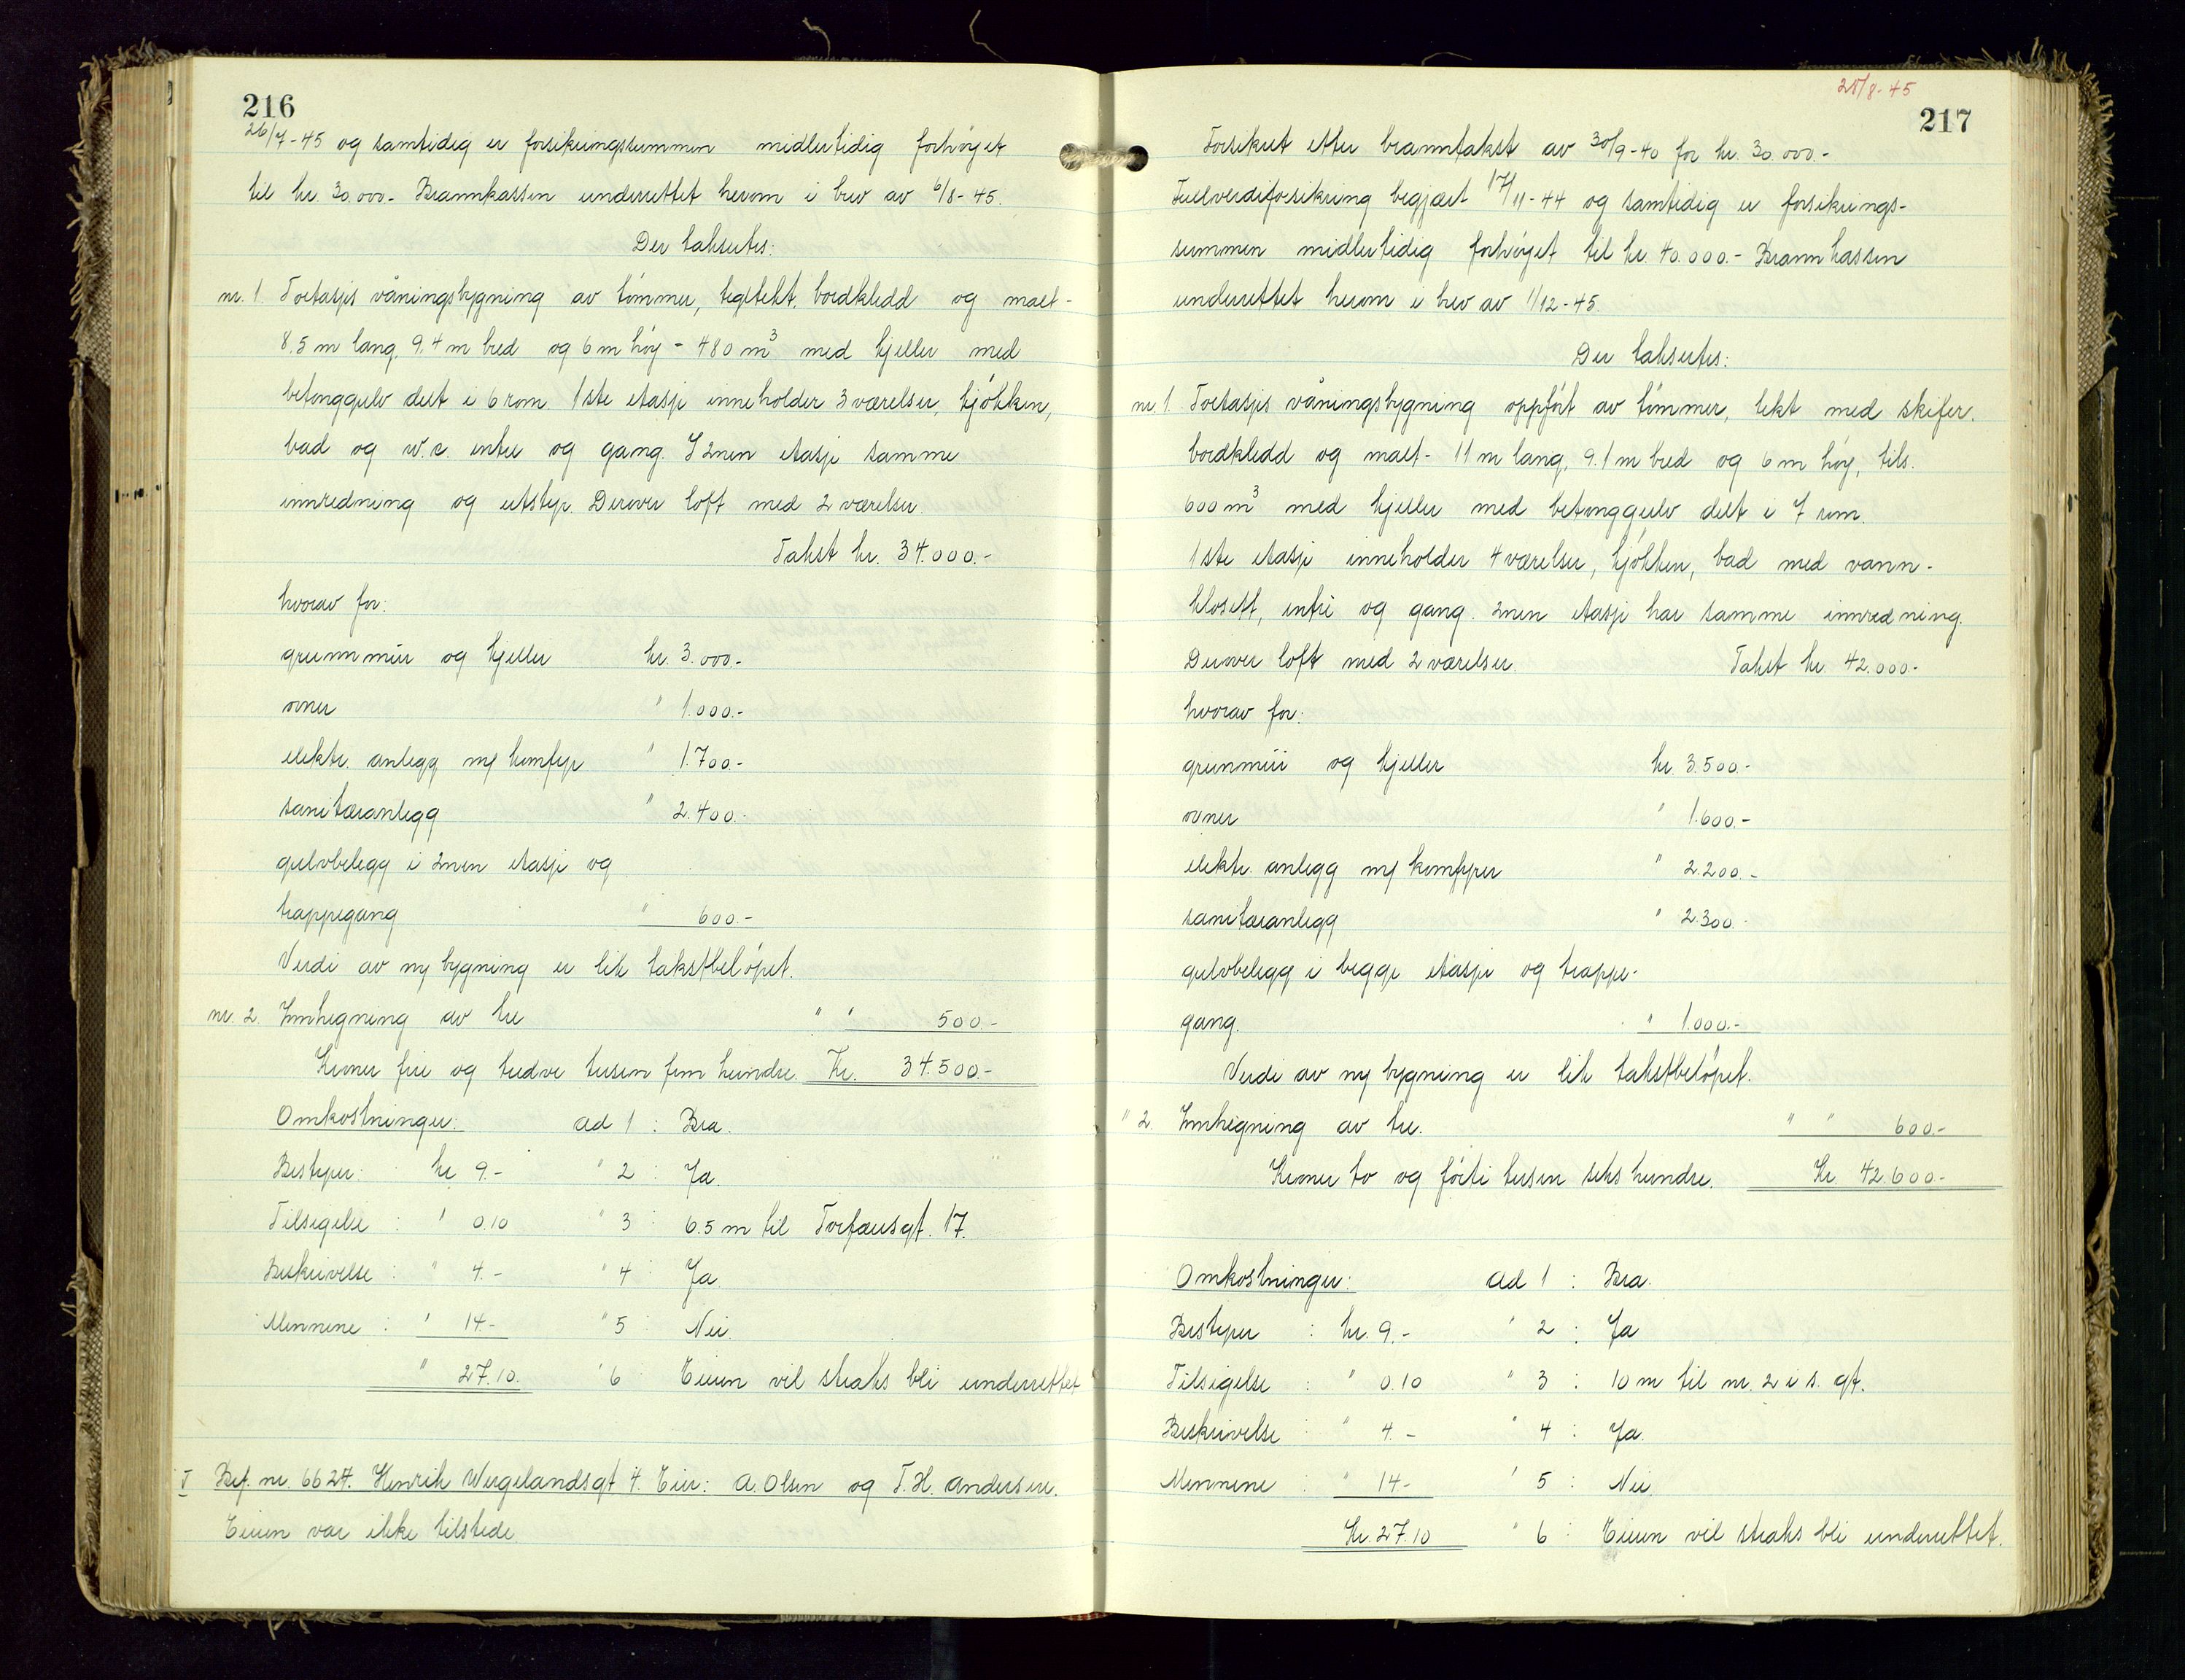 216
26/7-45 og samtidig er forsikringssummen midlertidig forhöyet
til kr. 30.000.- Brannkassen underrettet herom i brev av 6/8-45.
Der takseres:
nr. 1. Toetasjes våningsbygning av tömmer, teglstekt, bordkledd og malt-
8.5 m lang, 9.4 m bred og 6 m höy - 480 m³ med kjeller med
betonggulv delt i 6 rom. 1ste etasje inneholder 3 værelser, kjökken,
bad og w.c. entre og gang. I 2nen etasje samme
innredning og utstyr. Derover loft med 2 værelser.
Takst kr. 34.000.-
hvorav for:
grunnmur og kjeller kr. 3.000.-
ovner " 1.000.-
elektr. anlegg m/ komfyr " 1.700.-
sanitæranlegg " 2.400.-
gulvbelegg i 2nen etasje og
trappegang " 600.-
Verdi av ny bygning er lik takstbelöpet.
nr. 2. Innhegning av tre " " 500.-
Kroner fire og tredve tusen fem hundre. Kr. 34.500.-
Omkostninger: ad 1 : Bra.
Bestyrer: kr. 9.- " 2 : Ja.
Tilsigelse : " 0.10 " 3 : 6.5 m til Torfæusgt. 17.
Beskrivelse : " 4.- " 4 : Ja.
Mennene : " 14.- " 5 : Nei.
" 27.10. " 6 : Eieren vil straks bli underrettet
V Bef. nr. 6627. Henrik Wergelandsgt 4. Eier: A. Olsen og T. H. Andersen.
Eieren var ikke tilstede
28/8-45
217
Forsikret etter branntakst av 30/9-40 for kr. 30.000.-
Fullverdiforsikring begjært 17/11-44 og samtidig er forsikrings-
summen midlertidig forhöyet til kr. 40.000.- Brannkassen
underrettet herom i brev av 1/12-45.
Der takseres:
nr. 1. Toetasjes våningsbygning oppfört av tömmer, tekt med skifer,
bordkledd og malt- 11 m lang, 9.1 m bred og 6 m höy, tils.
600 m³ med kjeller med betonggulv delt i 7 rom.
1ste etasje inneholder 4 værelser, kjökken, bad med vann-
klosett, entre og gang. 2nen etasje har samme innredning.
Derover loft med 2 værelser. Takst kr. 42.000.-
hvorav for:
grunnmur og kjeller kr. 3.500.-
ovner " 1.600.-
elektr. anlegg m/ komfyrer " 2.200.-
sanitæranlegg " 2.300.-
gulvbelegg i begge etasjer og trappe-
gang. " 1.000.-
Verdi av ny bygning er lik takstbelöpet.
" 2. Innhegning av tre. " " 600.-
Kroner to og förti tusen seks hundre. Kr. 42.600.-
Omkostninger: ad 1 : Bra.
Bestyrer : kr. 9.- " 2 : Ja
Tilsigelse : " 0.10 " 3 : 10 m til nr. 2 i s. gt.
Beskrivelse : " 4.- " 4 : Ja.
Mennene : " 14.- " 5 : Nei
Kr. 27.10 " 6 : Eieren vil straks bli underrettet.